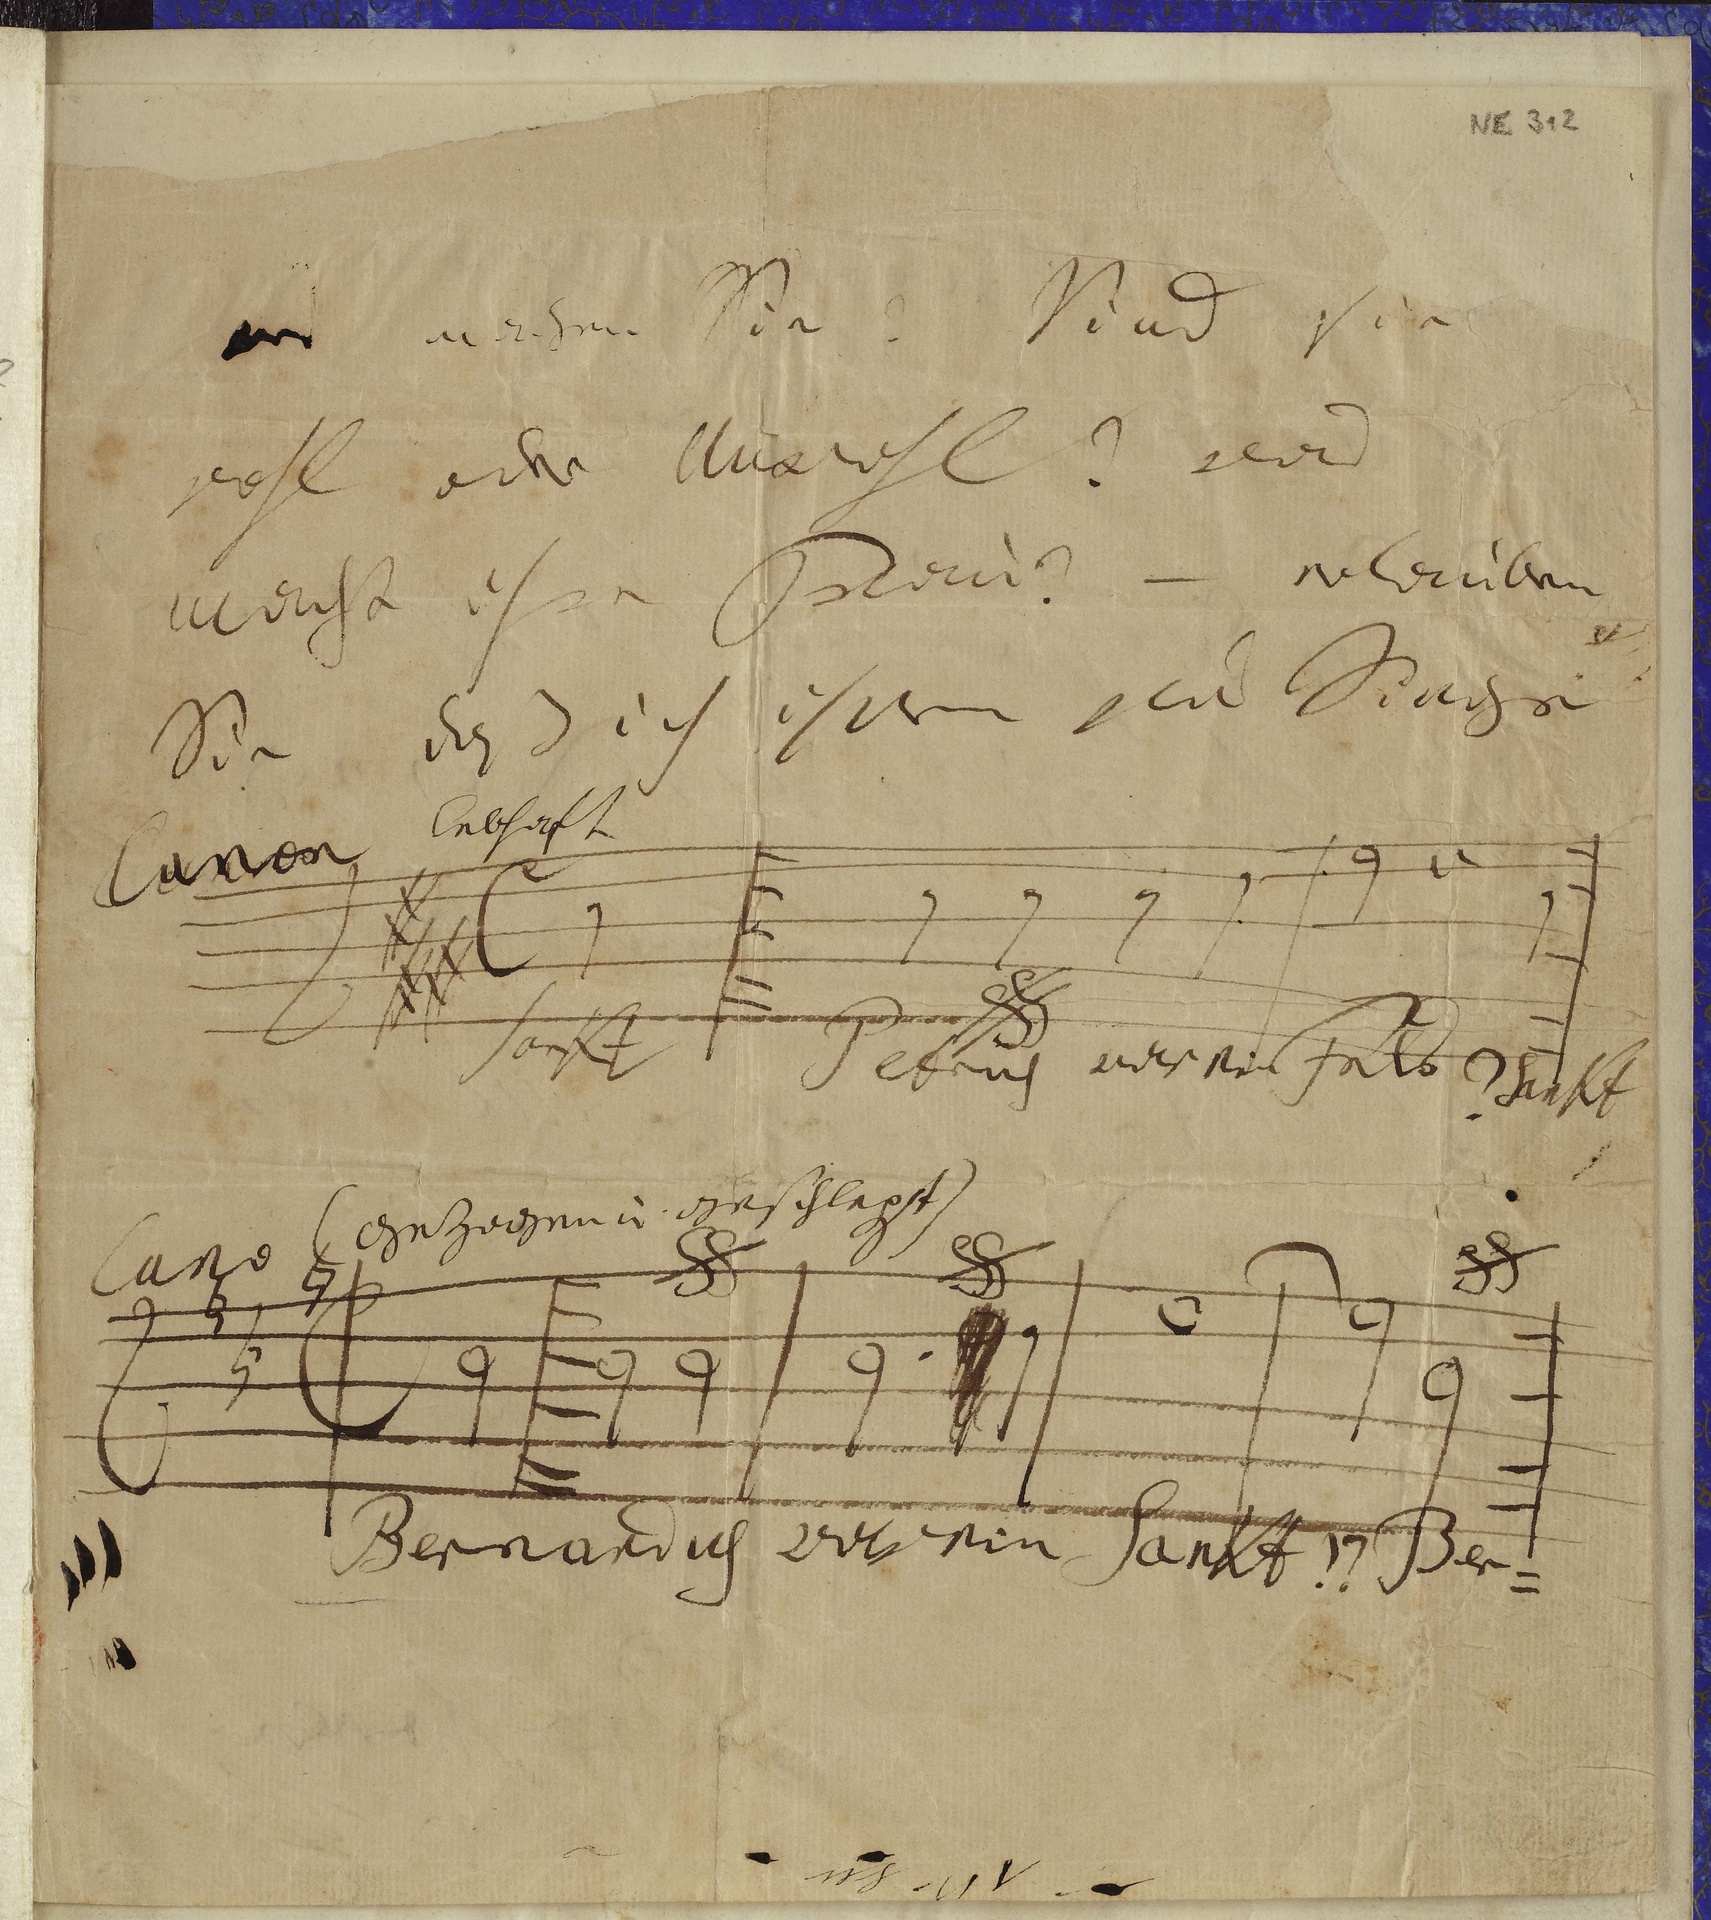 NE 312
machen Sie? Sind sie
wohl oder Unwohl? was
macht ihre Frau? — erlauben
Sie daß ich ihnen was Singe
Canon lebhaft
Sankt Petrus war ein Fels? Sankt
Cano (gezogen u. geschlept)
Bernardus war ein Sankt!? Ber=